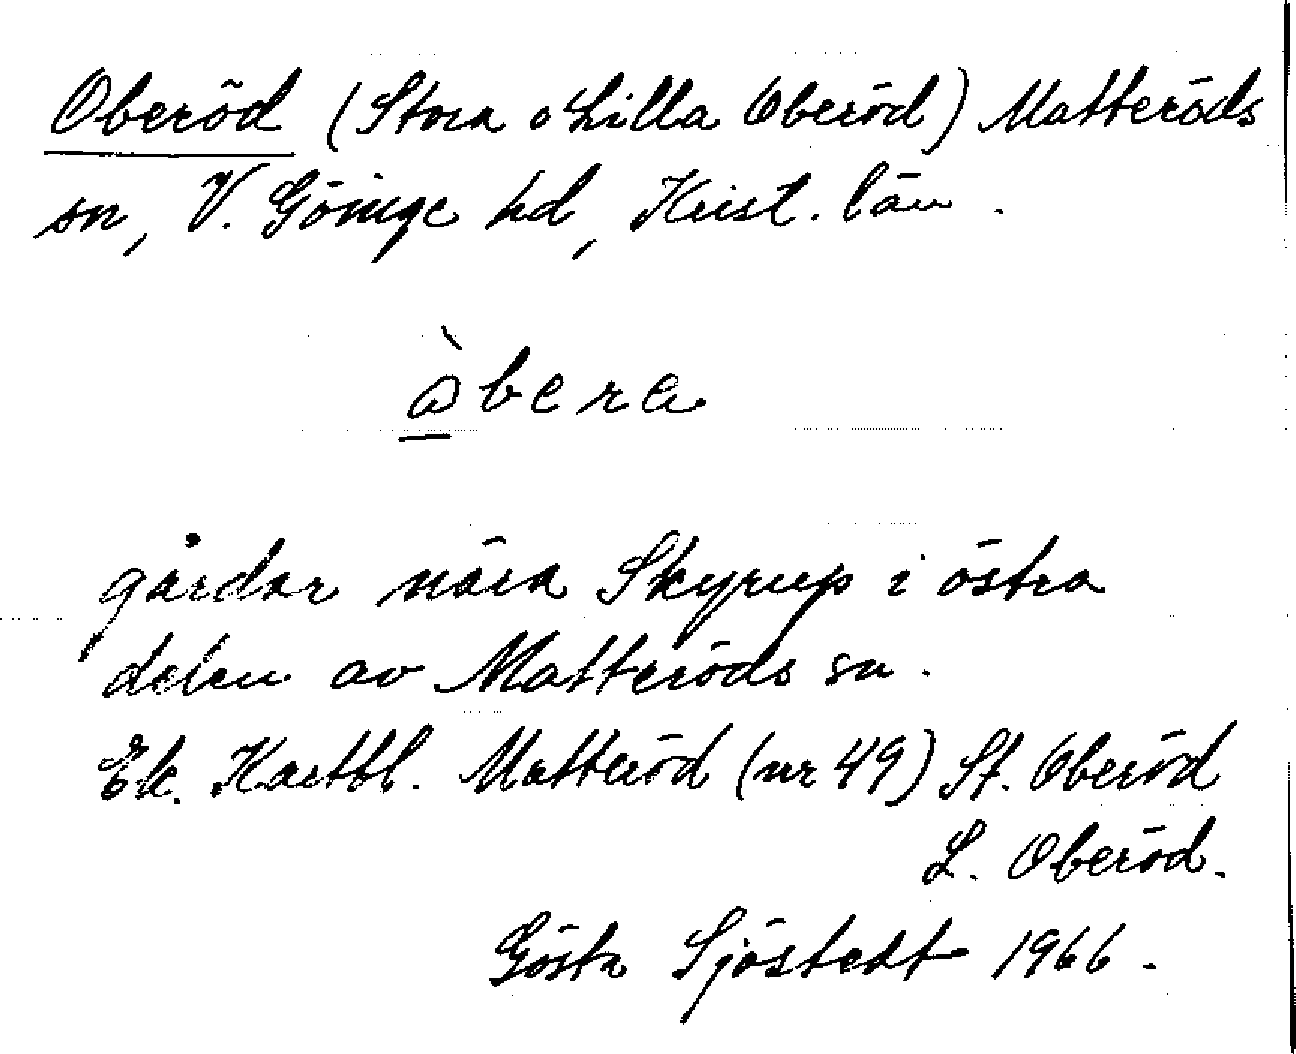 Oberöd (Stora o Lilla Oberöd) Matteröds
sn, V. Göinge hd, Krist. län.
gårdar nära Skyrup i östra
delen av Matteröds sn.
Ek. Kartbl. Matteröd (nr 49) St. Oberöd
L. Oberöd.
Gösta Sjöstedt 1966.